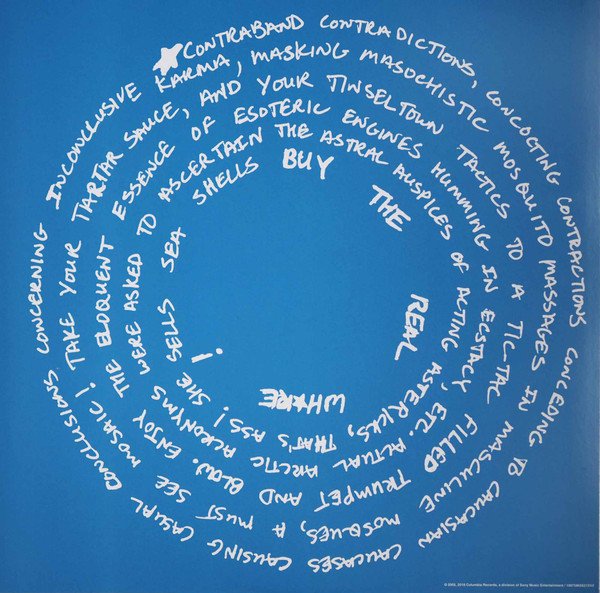 CONTRABAND CONTRADICTIONS, CONCOCTING CONTRACTIONS CONCEDING TO CAUCASIAN CAUCASES CAUSING CASUAL CONCLUSIONS CONCERNING
INCONCLUSIVE KARMA, MASKING MASOCHISTIC MOSQUITO MASSAGES IN MASCULINE MOSQUES, A MUST SEE MOSAIC! TAKE YOUR
TARTAR SAUCE, AND YOUR TINSELTOWN TACTICS TO A TIC-TAC FILLED TRUMPET AND BLOW. ENJOY THE ELOQUENT
ESSENCE OF ESOTERIC ENGINES HUMMING IN ECSTACY, ETC. ACTUAL ARCTIC ACRONYMS WERE ASKED TO
ASCERTAIN THE ASTRAL AUSPICES OF ACTING ASTERICKS, THAT'S ASS! SHE SELLS SEA
SHELLS BUY THE REAL WHARE!
Columbia Records, a division of Sony Music Entertainment